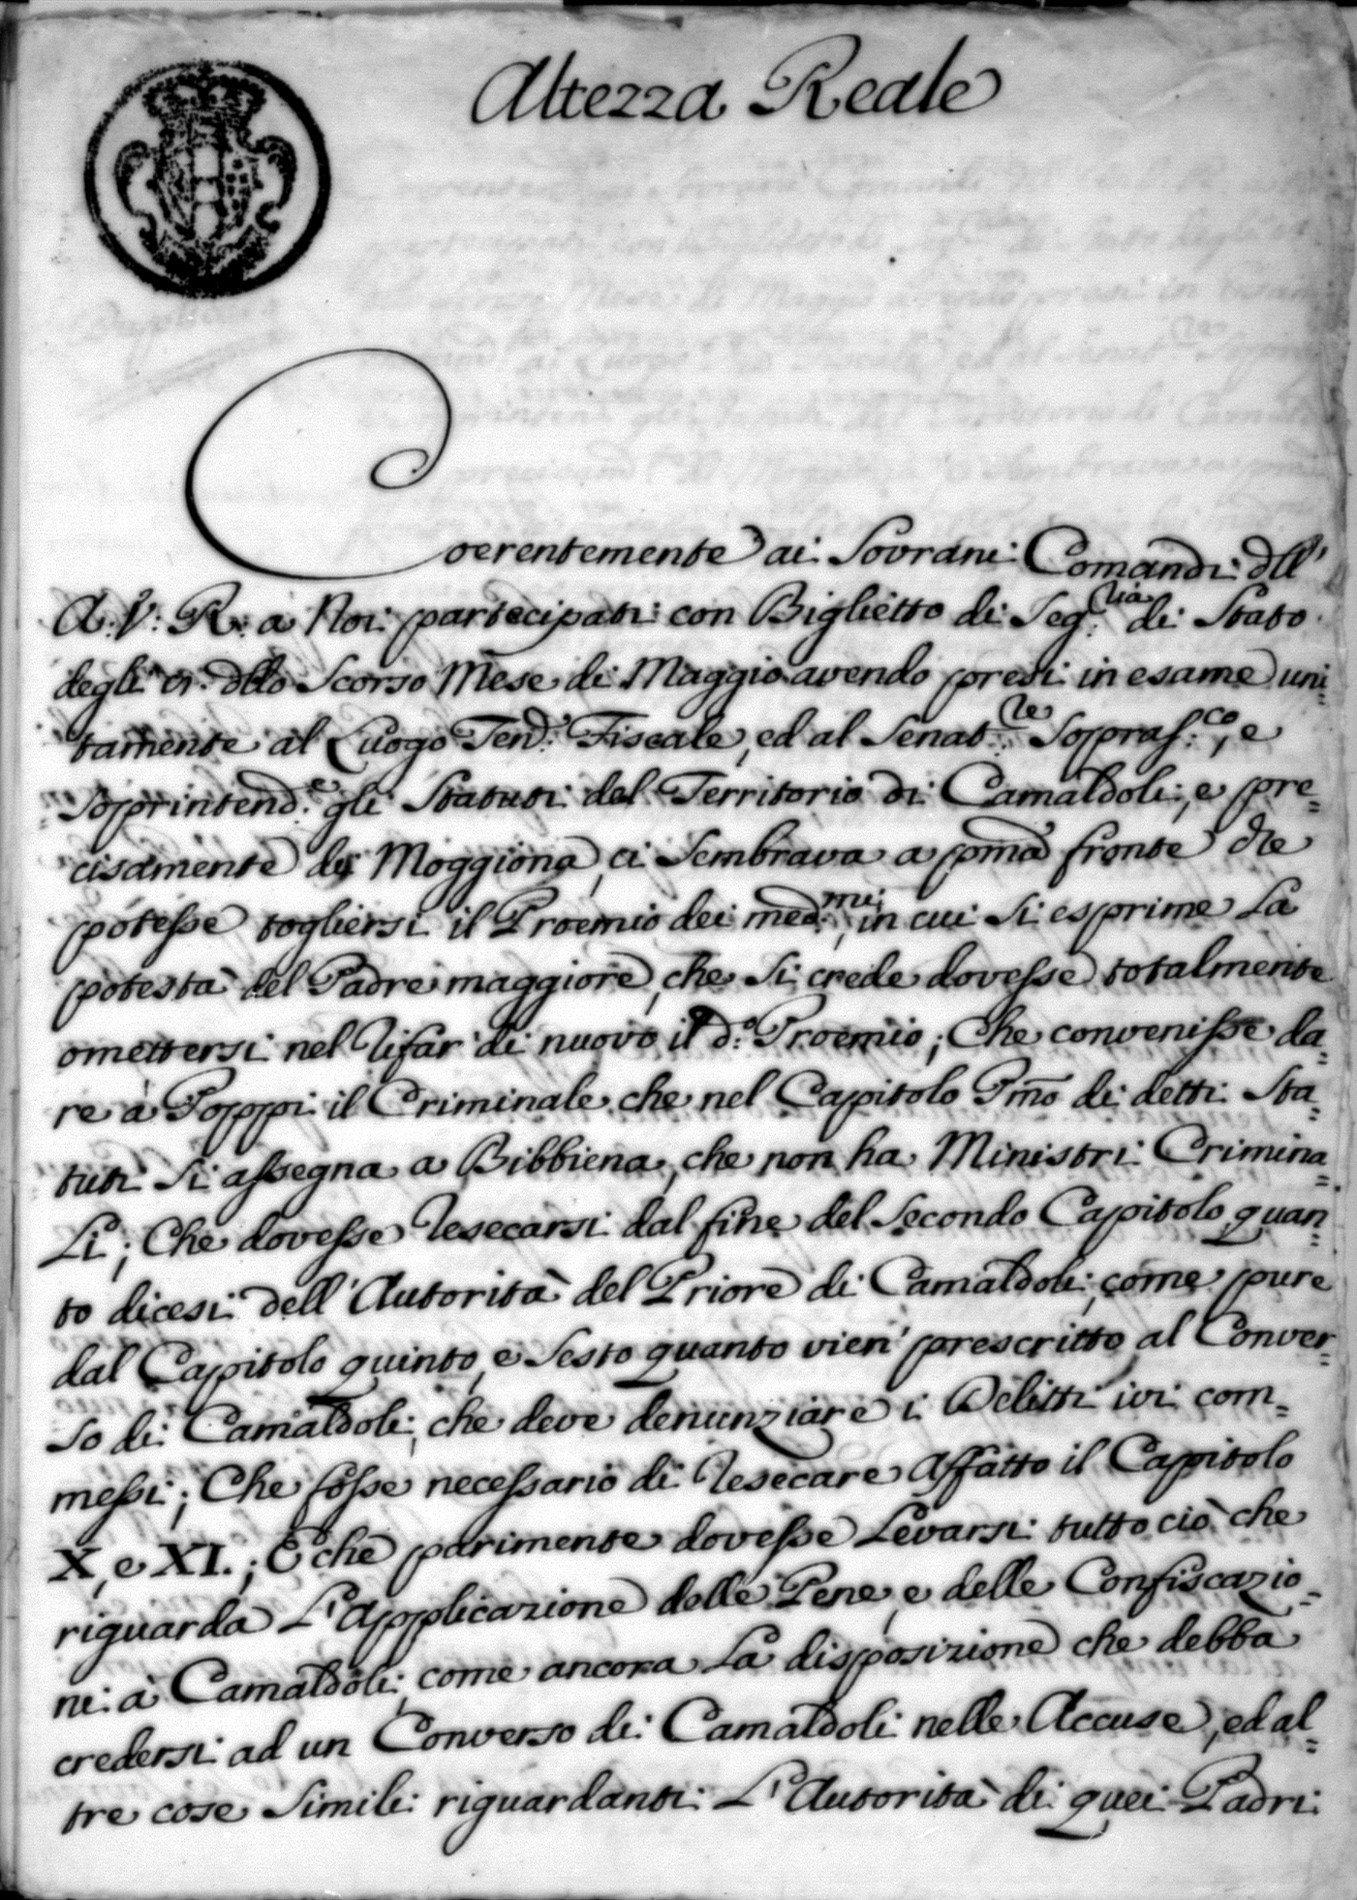 Altezza Reale
Coerentemente ai Sovrani Comandi dll'
A: V: R: a Noi partecipati con Biglietto di Seg:ria di Stato
degli dllo Scorso Mese di Maggio avendo presi in esame uni=
tamente al Luogo Tend: Fiscale, ed al Senat:re Sopras:co, e
Soprintend:e gli Statuti del Territorio di Camaldoli, e pre=
cisamente di Moggiona, ci Sembrava a pma fronte che
potesse togliersi il Proemio dei med:mi, in cui Si esprime La
potestà del Padre maggiore, che Si crede dovesse totalmente
omettersi nel rifar di nuovo il d:o Proemio; Che convenisse da=
re a Poppi il Criminale che nel Capitolo Pmo di detti Sta=
tuti Si assegna a Bibbiena, che non ha Ministri Crimina=
Li; Che dovesse resecarsi dal fine del Secondo Capitolo quan=
to dicesi dell'Autorità del Priore di Camaldoli, come pure
dal Capitolo quinto, e Sesto quanto vien' prescritto al Conver=
So di Camaldoli, che deve denunziare i Delitti ivi com=
messi; Che fosse necessario di resecare affatto il Capitolo
X, e XI.; E che parimente dovesse Levarsi tutto ciò che
riguarda L'Applicazione delle Pene, e delle Confiscazio=
ni à Camaldoli, come ancora La disposizione che debba
credersi ad un Converso di Camaldoli nelle Accuse, ed al=
tre cose Simili riguardanti L'Autorità di quei Padri